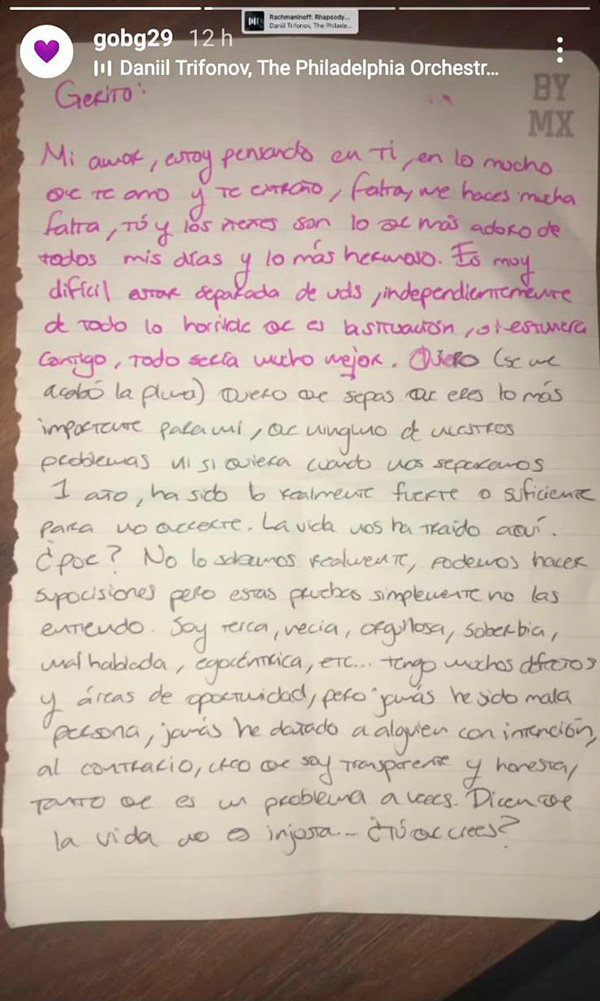 Rachmaninoff: Rhapsody...
Daniil Trifonov, The Philade...
gobg29 12 h
Daniil Trifonov, The Philadelphia Orchestr...
BY
MX
Gerito:
Mi amor, estoy pensando en Ti, en lo mucho
qe te amo y te extraño, falta, me haces mucha
falta, tú y los nenes son lo qe más adoro de
todos mis días y lo más hermoso. Es muy
difícil estar separada de uds, independientemente
de todo lo horrible qe es la situación, si estuviera
contigo, todo sería mucho mejor. Quiero (se me
acabó la pluma) Quiero qe sepas qe eres lo más
importante para mí, qe ninguno de nuestros
problemas ni si quiera cuando nos separamos
1 año, ha sido lo realmente fuerte o suficiente
para no
La vida nos ha traído aquí.
¿Poqe? No lo sabemos realmente, podemos hacer
suposiciones pero estas pruebas simplemente no las
entiendo. Soy terca, necia, orgullosa, soberbia,
mal hablada, egocéntrica, etc... tengo muchos defectos
y áreas de oportunidad, pero jamás he sido mala
persona, jamás he dañado a alguien con intención,
al contrario, creo qe soy transparente y honesta,
tanto qe es un problema a veces. Dicen qe
la vida no es injusta... ¿Tú qe crees?